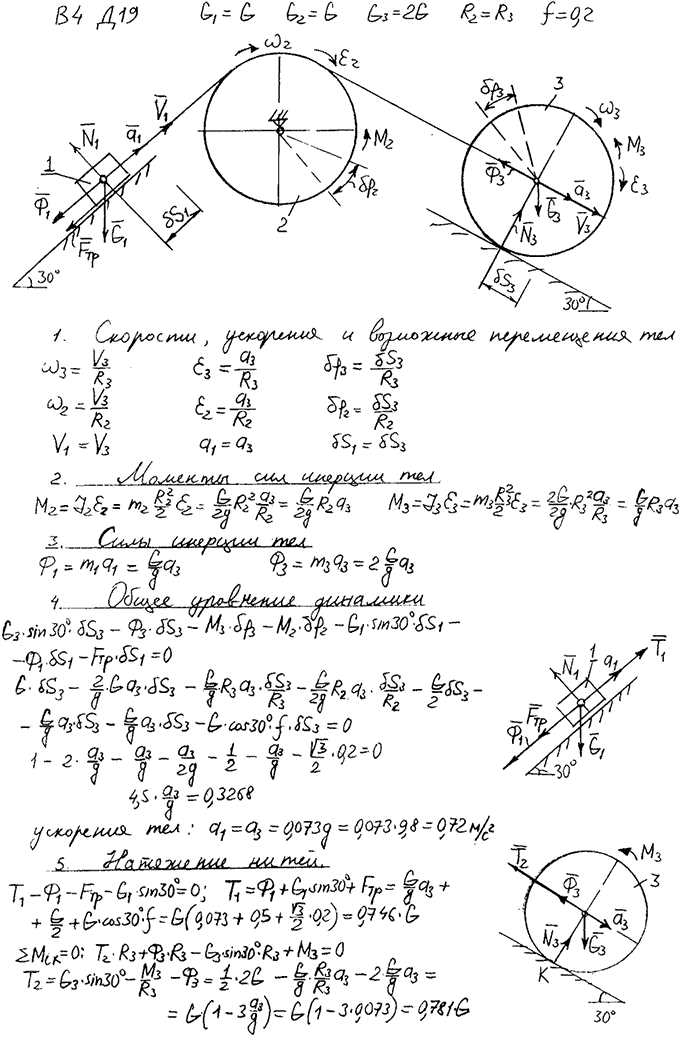 В4 Д19 G₁ = G G₂ = G G₃ = 2G R₂ = R₃ f = 0,2
ω₂ ε₂
N̄₁ ā₁ V̄₁
1
Φ̄₁ F̄тр Ḡ₁ δS₁
30°
M₂ δφ₂
2
δφ₃ 3 ω₃
M₃
ε₃
Φ̄₃ ā₃
Ḡ₃ V̄₃
N̄₃
δS₃
30°
1. Скорости, ускорения и возможные перемещения тел
ω₃ = V₃/R₃ ε₃ = a₃/R₃ δφ₃ = δS₃/R₃
ω₂ = V₃/R₂ ε₂ = a₃/R₂ δφ₂ = δS₃/R₂
V₁ = V₃ a₁ = a₃ δS₁ = δS₃
2. Моменты сил инерции тел
M₂ = J₂ε₂ = m₂ R₂²/2 ε₂ = G/2g R₂² a₃/R₂ = G/2g R₂a₃ M₃ = J₃ε₃ = m₃ R₃²/2 ε₃ = 2G/2g R₃² a₃/R₃ = G/g R₃a₃
3. Силы инерции тел
Φ₁ = m₁a₁ = G/g a₃ Φ₃ = m₃a₃ = 2 G/g a₃
4. Общее уравнение динамики
G₃·sin30°·δS₃ − Φ₃·δS₃ − M₃·δφ₃ − M₂·δφ₂ − G₁·sin30°·δS₁ −
− Φ₁·δS₁ − Fтр·δS₁ = 0
G·δS₃ − 2/g·G a₃·δS₃ − G/g R₃a₃·δS₃/R₃ − G/2g R₂a₃·δS₃/R₂ − G/2 δS₃ −
− G/g a₃·δS₃ − G/g a₃·δS₃ − G·cos30°·f·δS₃ = 0
1 − 2·a₃/g − a₃/g − a₃/2g − 1/2 − a₃/g − √3/2·0,2 = 0
4,5·a₃/g = 0,3268
ускорения тел: a₁ = a₃ = 0,073g = 0,073·9,8 = 0,72 м/с²
5. Натяжение нитей.
T₁ − Φ₁ − Fтр − G₁·sin30° = 0; T₁ = Φ₁ + G₁·sin30° + Fтр = G/g a₃ +
+ G/2 + G·cos30°·f = G(0,073 + 0,5 + √3/2·0,2) = 0,746·G
ΣMᵢₖ = 0: T₂·R₃ + Φ₃·R₃ − G₃·sin30°·R₃ + M₃ = 0
T₂ = G₃·sin30° − M₃/R₃ − Φ₃ = 1/2·2G − G/g·R₃/R₃ a₃ − 2·G/g a₃ =
= G(1 − 3 a₃/g) = G(1 − 3·0,073) = 0,781G
N̄₁ 1 a₁ T̄₁
F̄тр
Φ̄₁ Ḡ₁
30°
T̄₂ M₃
Φ̄₃ 3
ā₃
N̄₃ Ḡ₃
K
30°